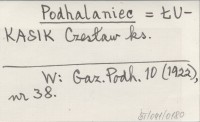 Podhalaniec = ŁU-
KASIK Czesław ks.
W: Gaz. Podh. 10 (1922),
nr 38.